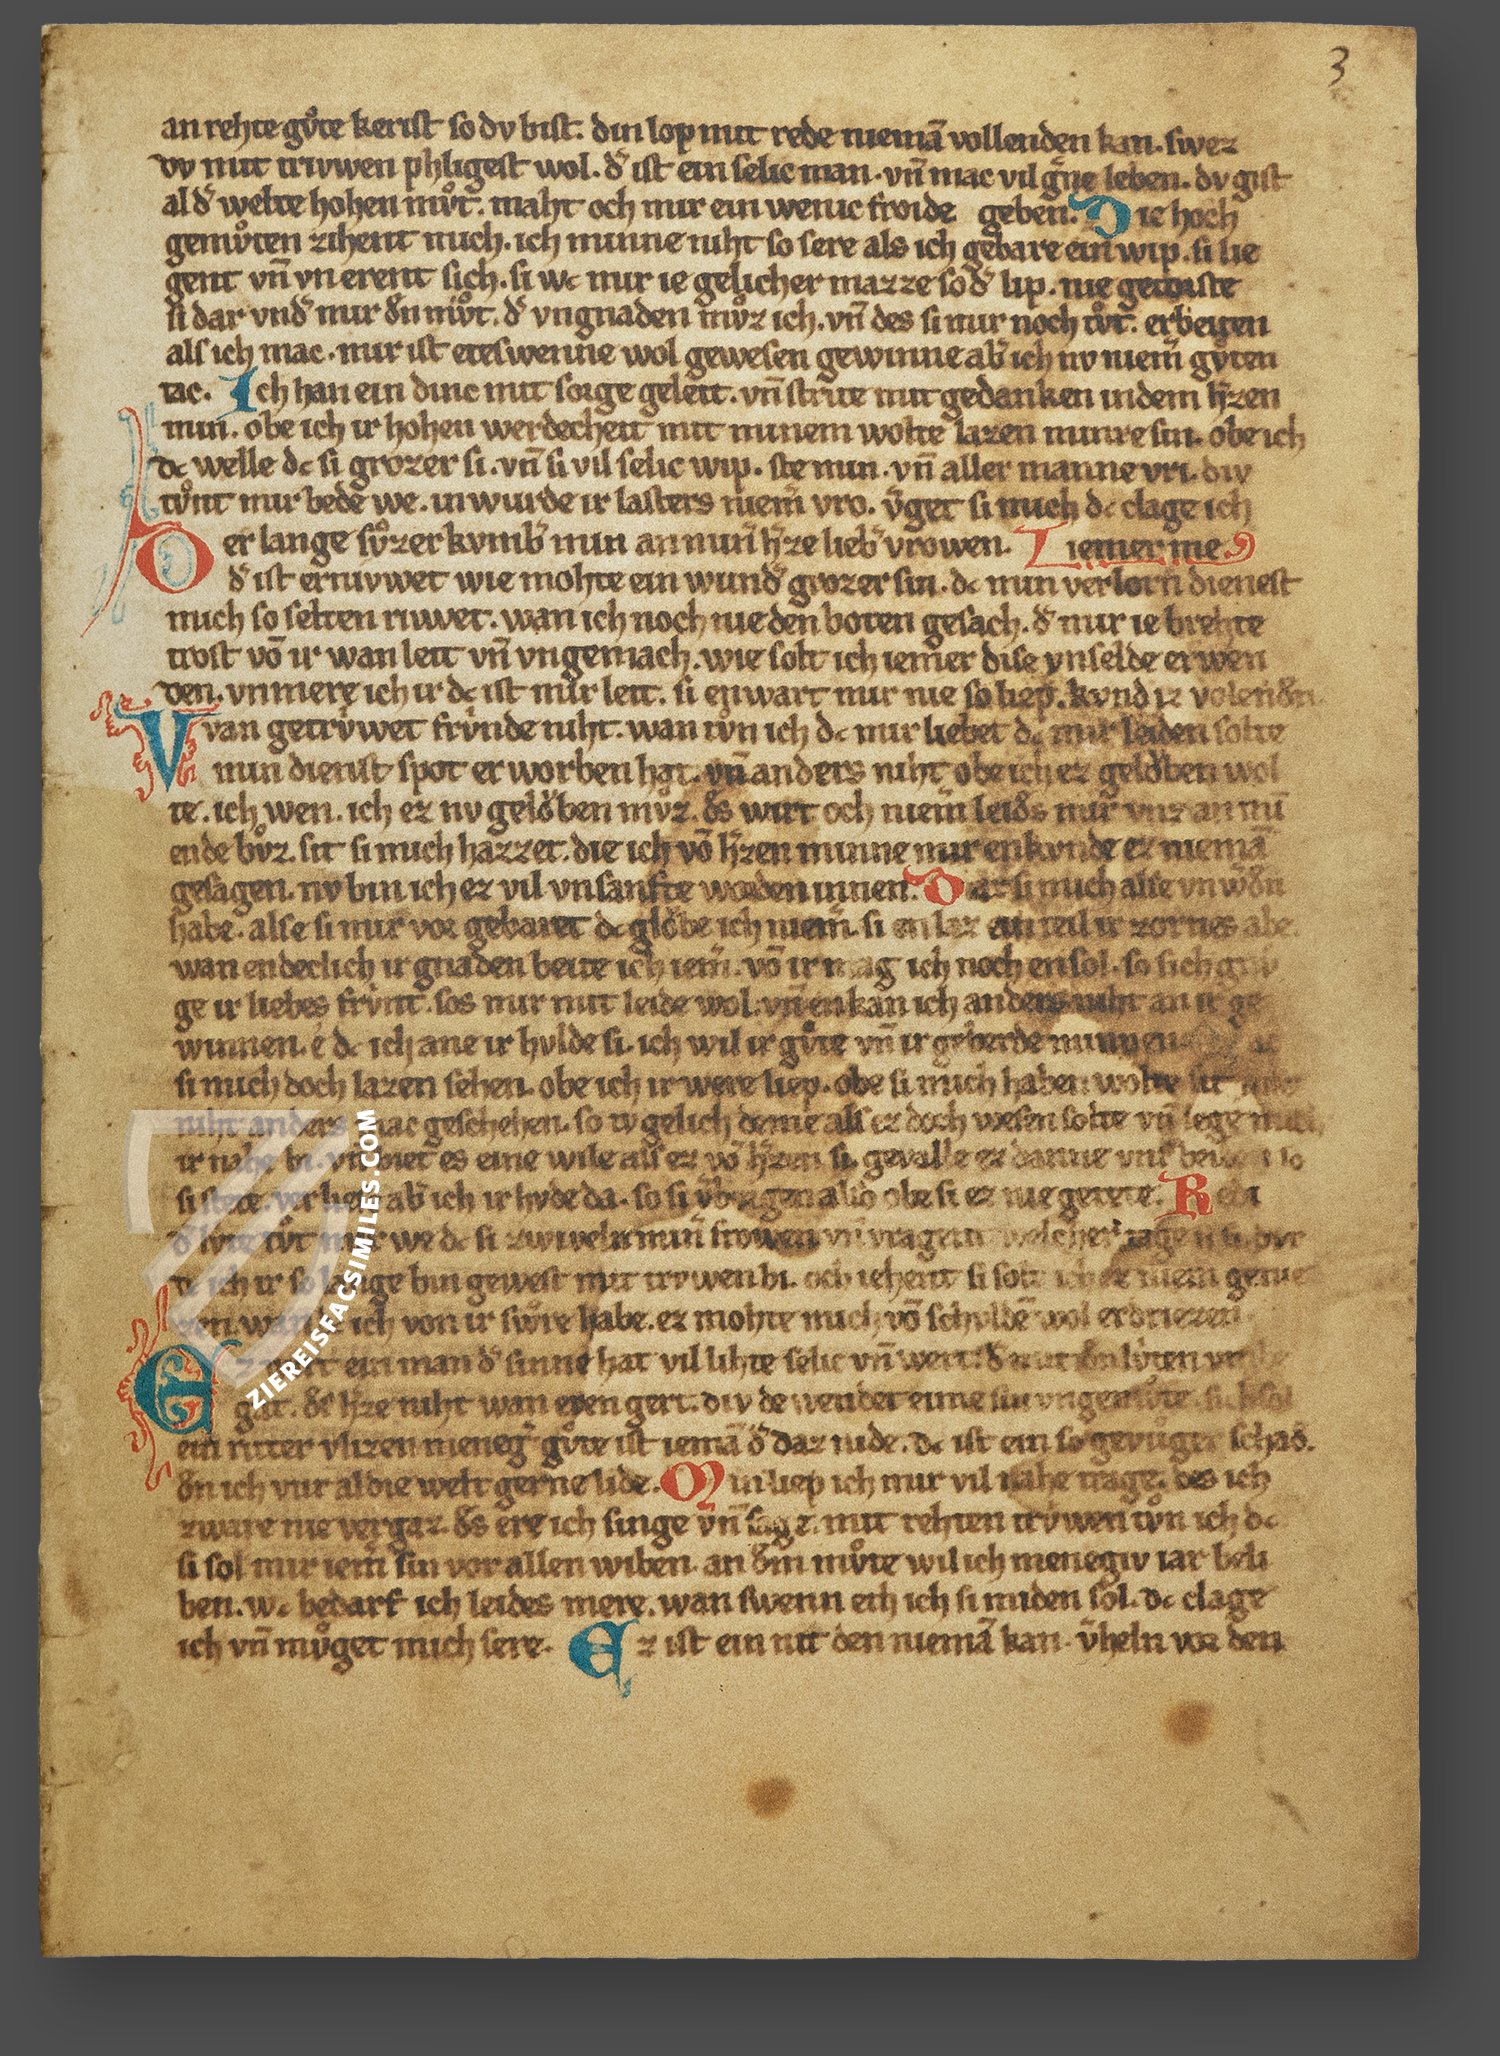 3
an rehte gv̊te kerist so dv bist. din lop mit rede niemā vollenden kan. swez
dv mit trivwen phligest wol. d͛ ist ein selic man. vn̄ mac vil g͛ne leben. dv gist
al d͛ welte hohen mv̊t. maht och mir ein wenic froide geben. Die hoch
gemv̊ten zihent mich. ich minne niht so sere als ich gebare ein wip. si lie
gent vn̄ vnerent sich. si wc mir ie gelicher mazze so d͛ lip. nie getroiste
si dar vnd͛ mir dn̄ mv̊t. d͛ vngnaden mv̊z ich. vn̄ des si mir noch tv̊t. erbeiten
als ich mac. mir ist eteswenne wol gewesen gewinne ab͛ ich nv niem͛ gv̊ten
tac. Ich han ein dinc mit sorge geleit. vn̄ strite mit gedanken in dem h͛zen
min. obe ich ir hohen werdecheit mit minem wolte lazen minre sin. obe ich
dc welle dc si grozer si. vn̄ si vil selic wip. ste min. vn̄ aller manne vri. div
tv̊nt mir bede we. in wurde ir lasters niem͛ vro. v͛get si mich dc clage ich
Der lange sv̊zer kvmb͛ min an min͛ h͛ze lieb͛ vrowen. iemer me
d͛ ist ernivwet wie mohte ein wund͛ grozer sin. dc min verlorn dienest
mich so selten rivwet. wan ich noch nie den boten gesach. d͛ mir ie brehte
trost vō ir wan leit vn̄ vngemach. wie solt ich iemer dise vnselde erwen
den. vnmere ich ir dc ist mir leit. si enwart mir nie so liep. kvnd iz volendn̄
Vvan getrv̍wet frv̍nde niht. wan tv̊n ich dc mir liebet dc mir leiden solte
min dienist spot erworben hat. vn̄ anders niht obe ich ez gelo̍ben wol
te. ich wen. ich ez nv gelo̍ben mv̊z. ds wirt och niem͛ leids mir vnz an min
ende bv̊z. sit si mich hazzet. die ich vō h͛zen minne mir enkvnde ez niemā
gesagen. nv bin ich ez vil vnsanfte worden innen. Daz si mich alse vnw͛dn̄
habe. alse si mir vor gebaret dc glo̍be ich niem͛. si enlaz ein teil ir zornes abe.
wan endeclich ir gnaden beite ich iem͛. vō ir mag ich noch ensol. so sich
ge ir liebes frv̍nt. sos mir mit leide wol. vn̄ enkan ich anders niht an ir ge
winnen. e dc ich ane ir hvlde si. ich wil ir gv̊te vn̄ ir geberde minnen
si mich doch lazen sehen. obe ich ir were liep. obe si mich haben wolte sit mir
niht anders mac geschehen. so tv gelich deme als ez doch wesen solte vn̄ lege mich
ir nahe bi. vn̄ biet es eine wile als ez vō h͛zen si. gevalle ez danne vns beiden so
si stete. verlies ab͛ ich ir hvlde da. so si v͛borgen also obe si ez nie getete. Rede
d͛ lvte tv̊t mir we dc si zwiveln min͛ frowen vn̄ vragent welcher tage
ich ir so lange bin gewest mit trvwen bi. och iehent si solt ich niem͛ genie
zen. wan ich von ir swere habe. ez mohte mich vō schvldē wol erdriezen.
Ez ein man d͛ sinne hat vil lihte selic vn̄ wert. d͛ mit dn̄ lv̍ten
gat. ds h͛ze niht wan eren gert. div de wendet eime sin vngemv̊te.
ein ritter vlizen meneg͛ gv̊te ist iemā d͛ daz nide. dc ist ein so gevv̊ger schad͛.
dn̄ ich vur aldie welt gerne lide. Min liep ich mir vil nahe trage. des ich
zware nie vergaz. ds ere ich singe vn̄ sage. mit rehten trv̍wen tv̊n ich dc
si sol mir iem͛ sin vor allen wiben. an dm mv̊te wil ich menegiv iar beli
ben. wc bedarf ich leides mere. wan swenn eth ich si miden sol. dc clage
ich vn̄ mv̊get mich sere. Ez ist ein nit den niemā kan. v͛heln vor den
ZIEREISFACSIMILES.COM